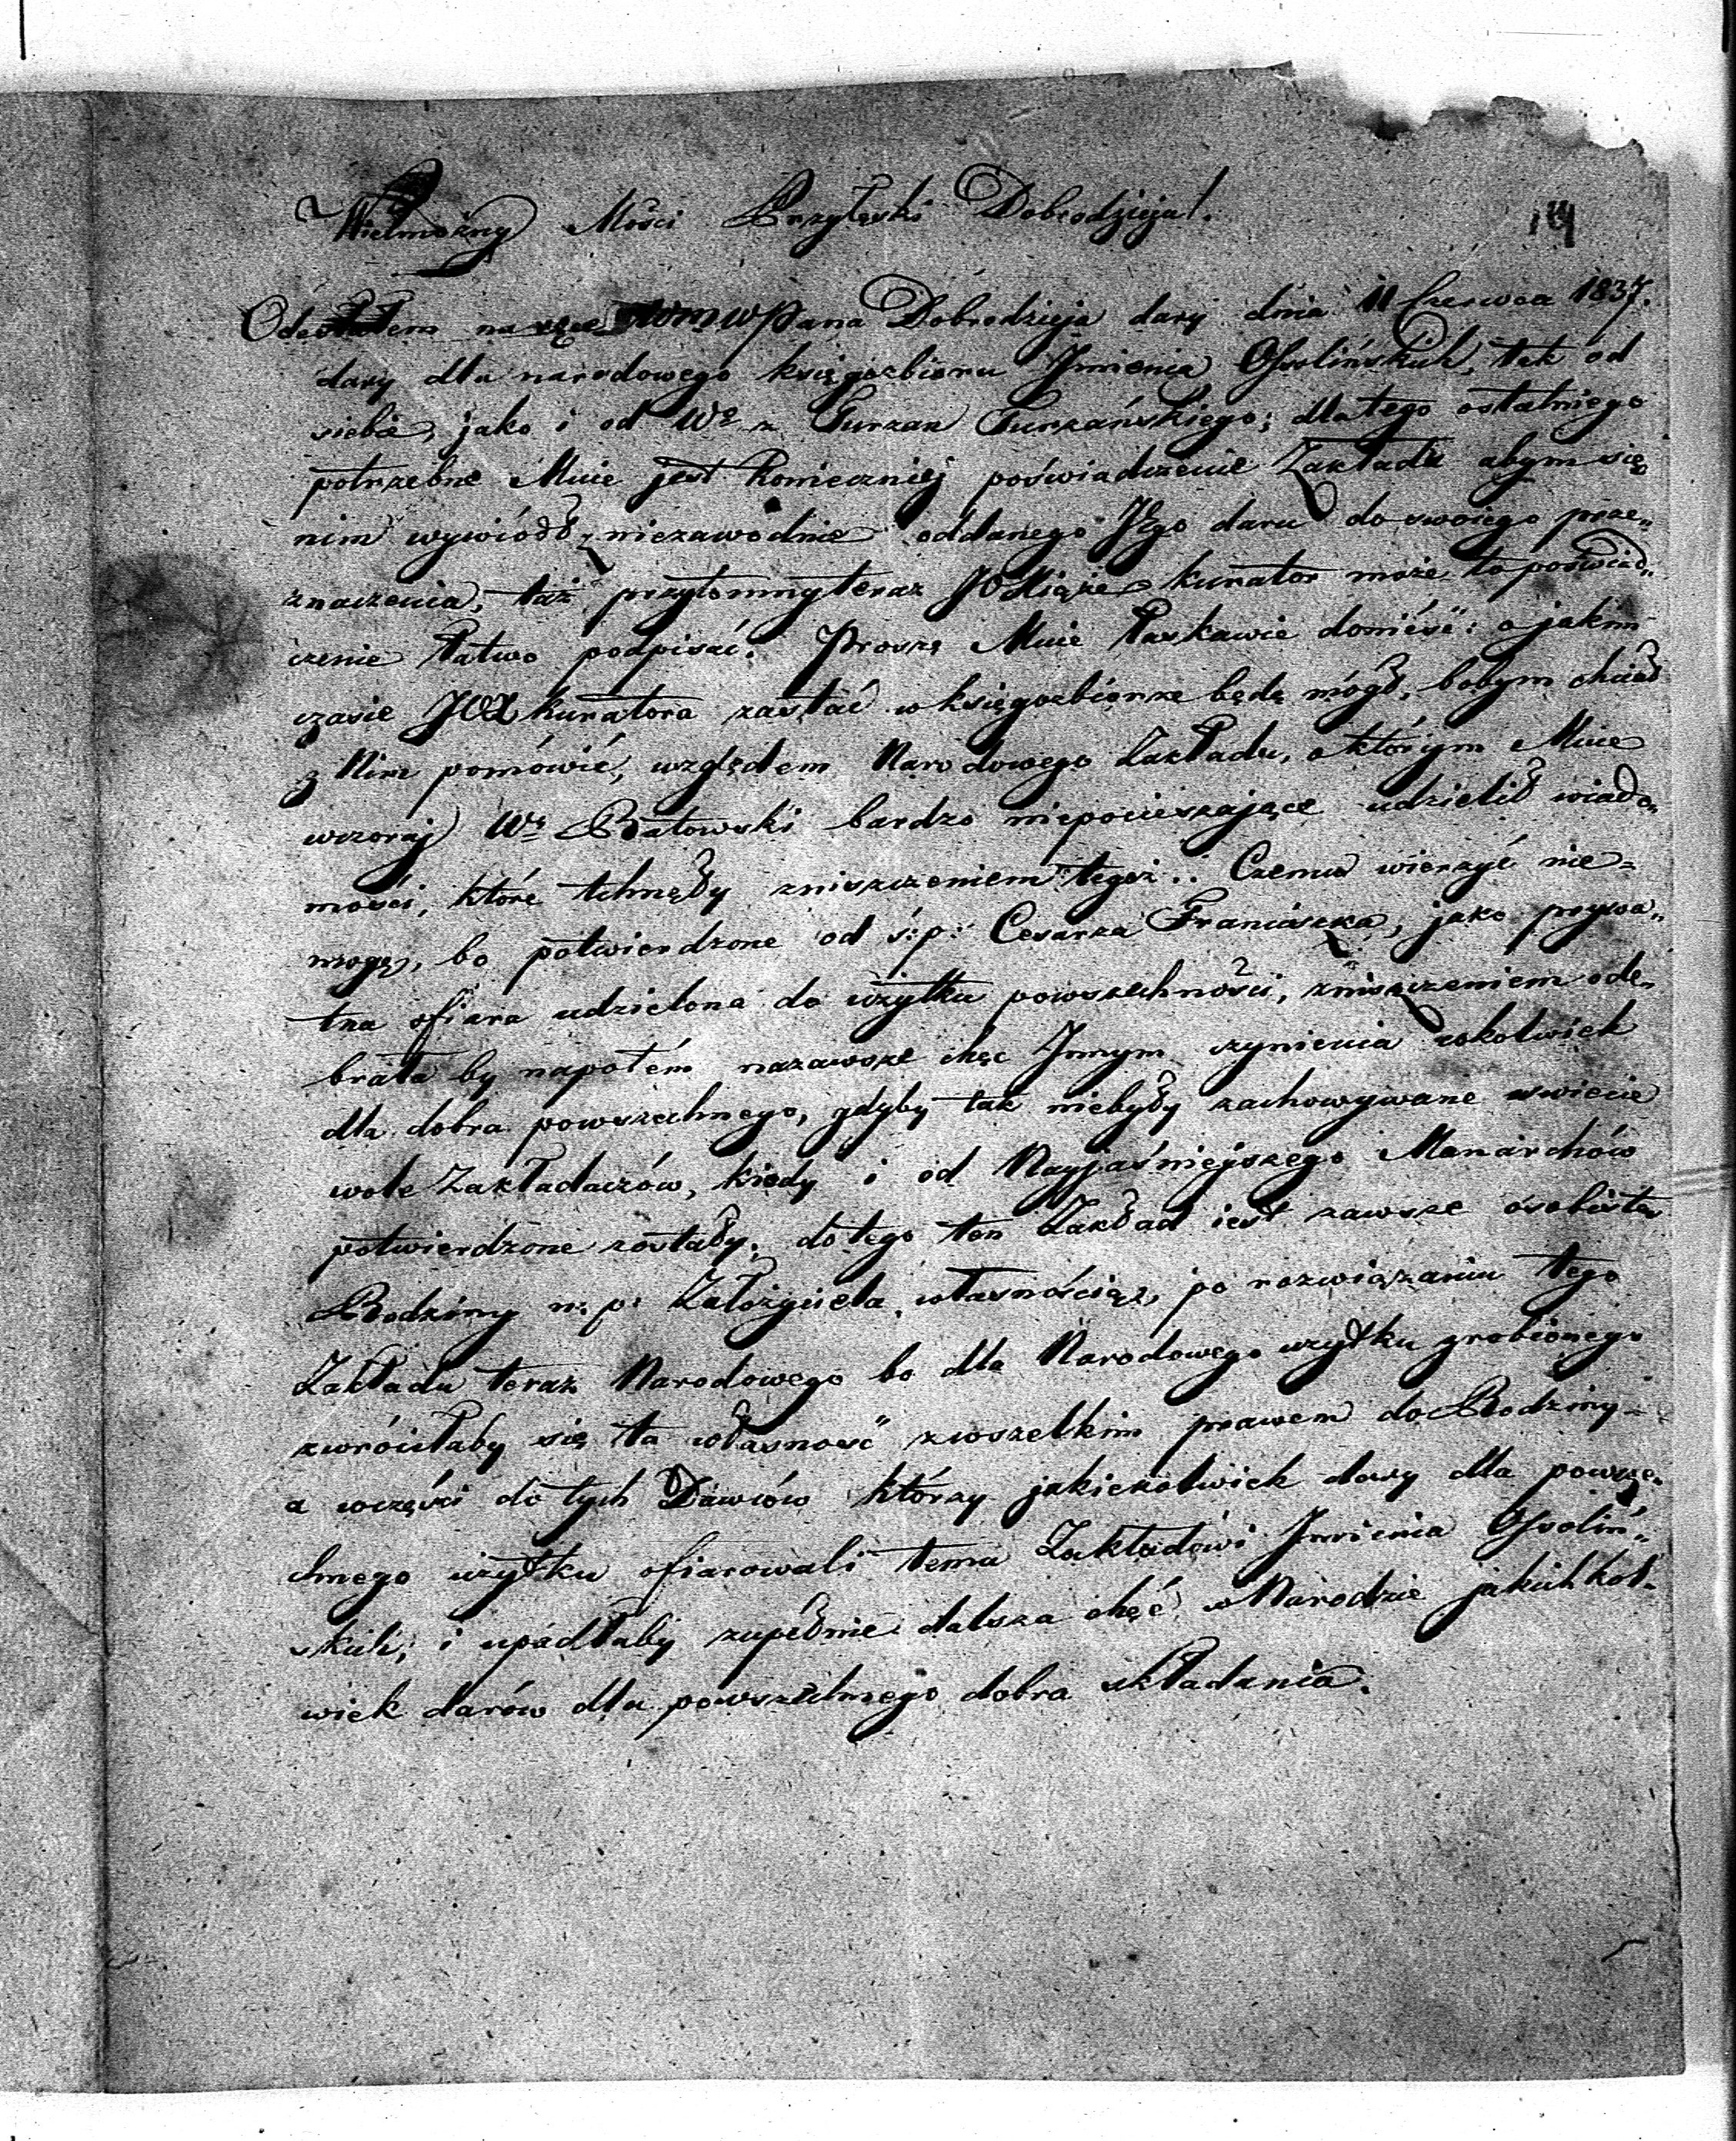 Wielmożny Mości Przyłęski Dobrodzieja!
14
Odesłałem na ręce WPana Dobrodzieja dary dnia 11 Czerwca 1837.
dary dla narodowego księgozbioru Jmienia Ossolińskich, tak od
siebie, jako i od We z Turzan Turzańskiego; dla tego ostatniego
potrzebne Mnie jest koniecznie poświadczenie Zakładu abym się
nim wywiódł, niezawodnie oddanego Jego daru do swoiego prze„
znaczenia, też przytomny teraz JO Xiąże kurator może to poświad„
czenie łatwo podpisać. Proszę Mnie łaskawie donieść: o jakim
czasie JOX kuratora zastać w księgozbiorze będę mógł, bobym chciał
z Nim pomówić, względem Narodowego Zakładu, o którym Mnie
wczoraj Wy Batowski bardzo niepocieszające udzielił wiado„
mości, które tchnęły zniszczeniem tegoż.. Czemu wierzyć nie=
mogę, bo potwierdzone od ś:p: Cesarza Franciszka, jako prywa„
tna ofiara udzielona do użytku powszechności, zniszczeniem ode„
brała by napotém nazawsze chęc Jnnym czynienia cokolwiek
dla dobra powszechnego, gdyby tak niebyły zachowywane w świecie
wole Zakładaczów, kiedy i od Nayjaśniejszego Monarchów
potwierdzone zostały; do tego ten Zakład iest zawsze osobistą
Rodziny n: p: Założyciela własnością, po rozwiązaniu tego
Zakładu teraz Narodowego bo dla Narodowego użytku zrobionego
zwróciłaby się ta własność zwszelkim prawem do Rodziny –
a wczęści do tych Dawców którzy jakiekolwiek dary dla powsze„
chnego użytku ofiarowali temu Zakładowi Jmienia Ossoliń„
skich; i upadłaby zupełnie dalsza chęć w Narodzie jakichkol„
wiek darów dla powszechnego dobra składania.